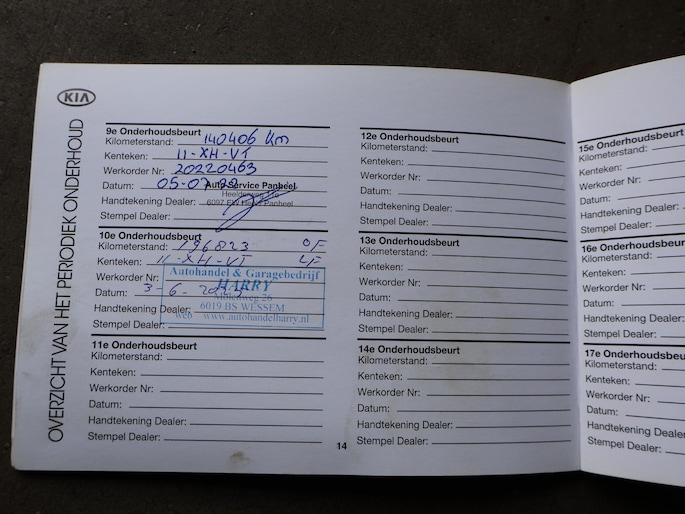 KIA
OVERZICHT VAN HET PERIODIEK ONDERHOUD
9e Onderhoudsbeurt
Kilometerstand: 140406 Km
Kenteken: 11-XH-VT
Werkorder Nr: 20220463
Datum: 05-07-22 Auto Service Panheel
Handtekening Dealer: 6097 Panheel
Stempel Dealer:
10e Onderhoudsbeurt
Kilometerstand: 196823 OF
Kenteken: 11-XH-VT LF
Werkorder Nr: Autohandel & Garagebedrijf
HARRY
Datum: 3-6-
26
Handtekening Dealer: 6019 BS WESSEM
web www.autohandelharry.nl
Stempel Dealer:
11e Onderhoudsbeurt
Kilometerstand:
Kenteken:
Werkorder Nr:
Datum:
Handtekening Dealer:
Stempel Dealer:
14
12e Onderhoudsbeurt
Kilometerstand:
Kenteken:
Werkorder Nr:
Datum:
Handtekening Dealer:
Stempel Dealer:
13e Onderhoudsbeurt
Kilometerstand:
Kenteken:
Werkorder Nr:
Datum:
Handtekening Dealer:
Stempel Dealer:
14e Onderhoudsbeurt
Kilometerstand:
Kenteken:
Werkorder Nr:
Datum:
Handtekening Dealer:
Stempel Dealer:
15e Onderhoudsbeurt
Kilometerstand:
Kenteken:
Werkorder Nr:
Datum:
Handtekening Dealer:
Stempel Dealer:
16e Onderhoudsbeu
Kilometerstand:
Kenteken:
Werkorder Nr:
Datum:
Handtekening Dealer:
Stempel Dealer:
17e Onderhoudsbeu
Kilometerstand:
Kenteken:
Werkorder Nr:
Datum:
Handtekening Dealer
Stempel Dealer: